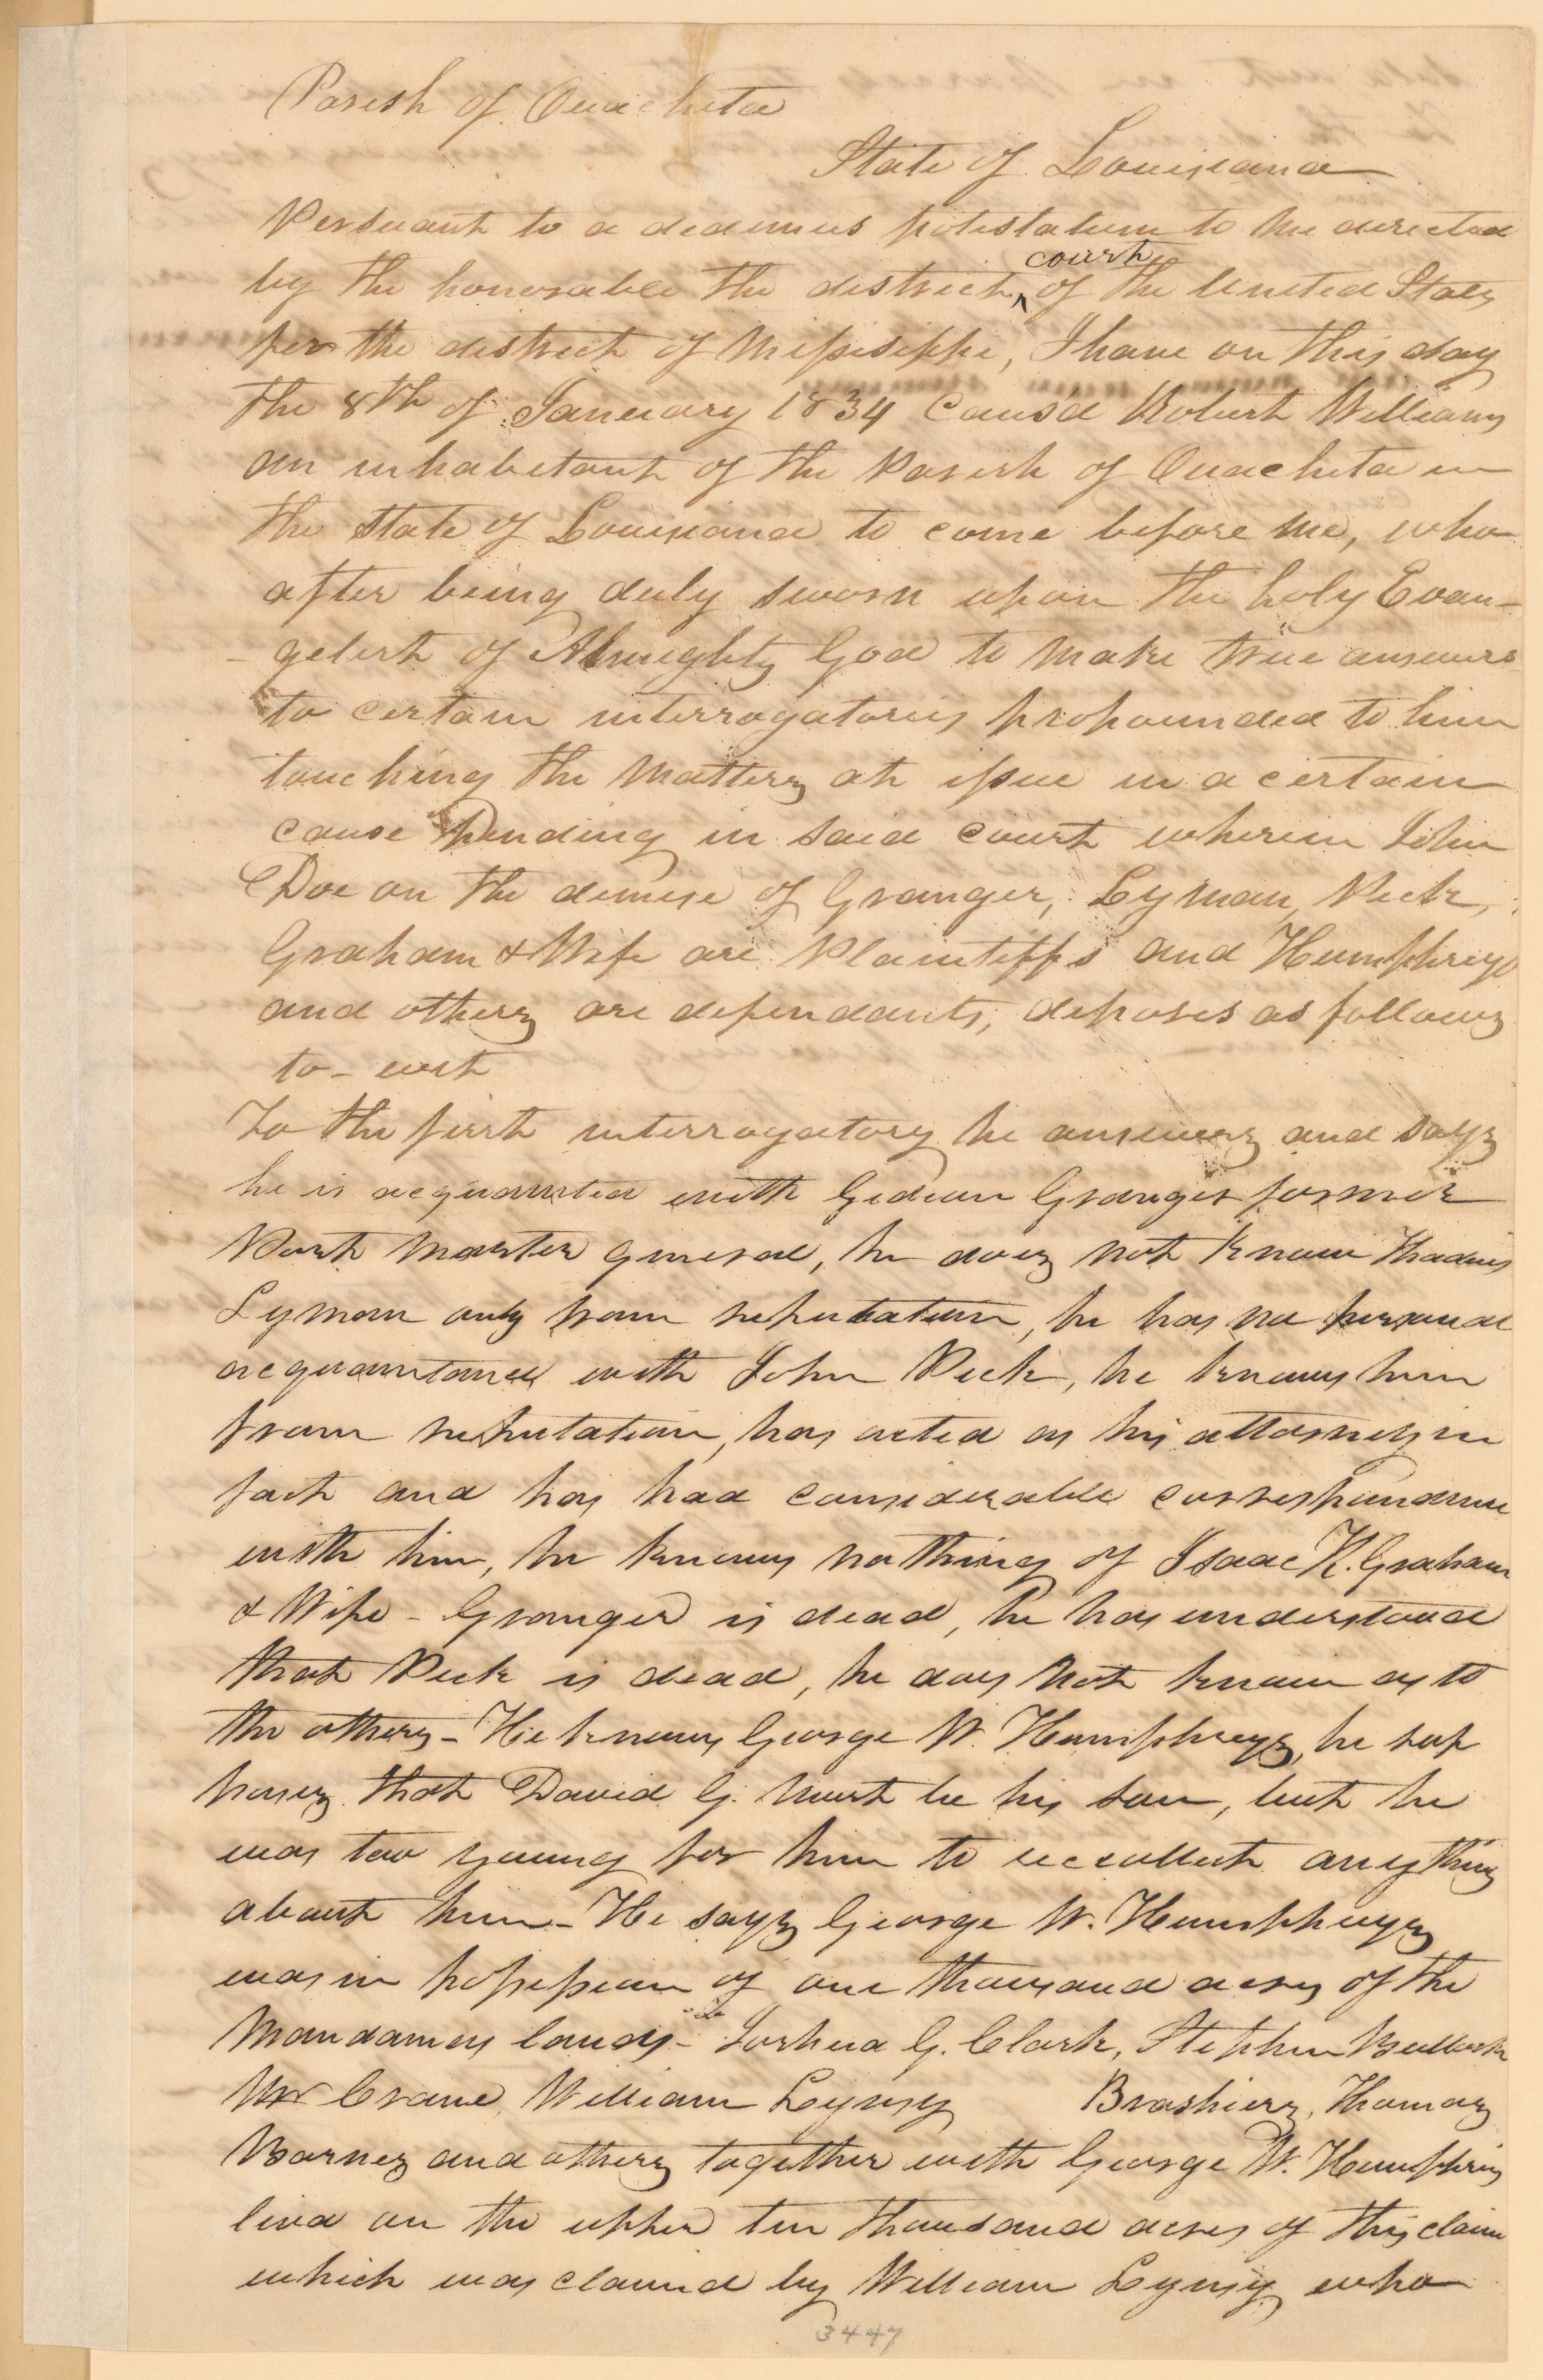 Parish of Ouachita
State of Louisiana
Persuant to a dedimus potestatum to me directed
by the honorable the district court of the United States
for the district of Missisippi, I have on this day
the 8th of January 1834 Caus'd Robert Williams
an inhabitant of the Parish of Ouachita in
the State of Louisiana to come before me, who
after being duly sworn upon the holy Evan-
-gelist of Almighty God to make true answers
to certain interrogatories propounded to him
touching the Matters at issue in a certain
cause Pending in said court wherein John
Doe on the demise of Granger, Lyman, Peck,
Graham & Wife are Plaintiffs and Humphreys
and others are defendants, deposes as follows
to-wit
To the first interrogatory he answers and says
he is acquainted with Gideon Granger former
Post Master general, he does not know Thadius
Lyman only from reputation, he has no personal
acquaintance with John Peck, he knows him
from reputation, has acted as his attorney in
fact and has had considerable correspondence
with him, he knows nothing of Isaac K. Graham
& Wife - Granger is dead, he has understood
that Peck is dead, he does not know as to
the others - He knows George W. Humphreys, he sup
poses that David G. must be his son, but he
was too young for him to reccollect anything
about him - He says George W. Humphreys
was in possession of one thousand acres of the
Mandamus lands - Joshua G. Clark, Stephen Bullock
Mr Crane, William Lyms Brashiers, Thomas
Barnes and others together with George W. Humphries
lived on the upper ten thousand acres of this claim
which was claimed by William Lyms, who
3447